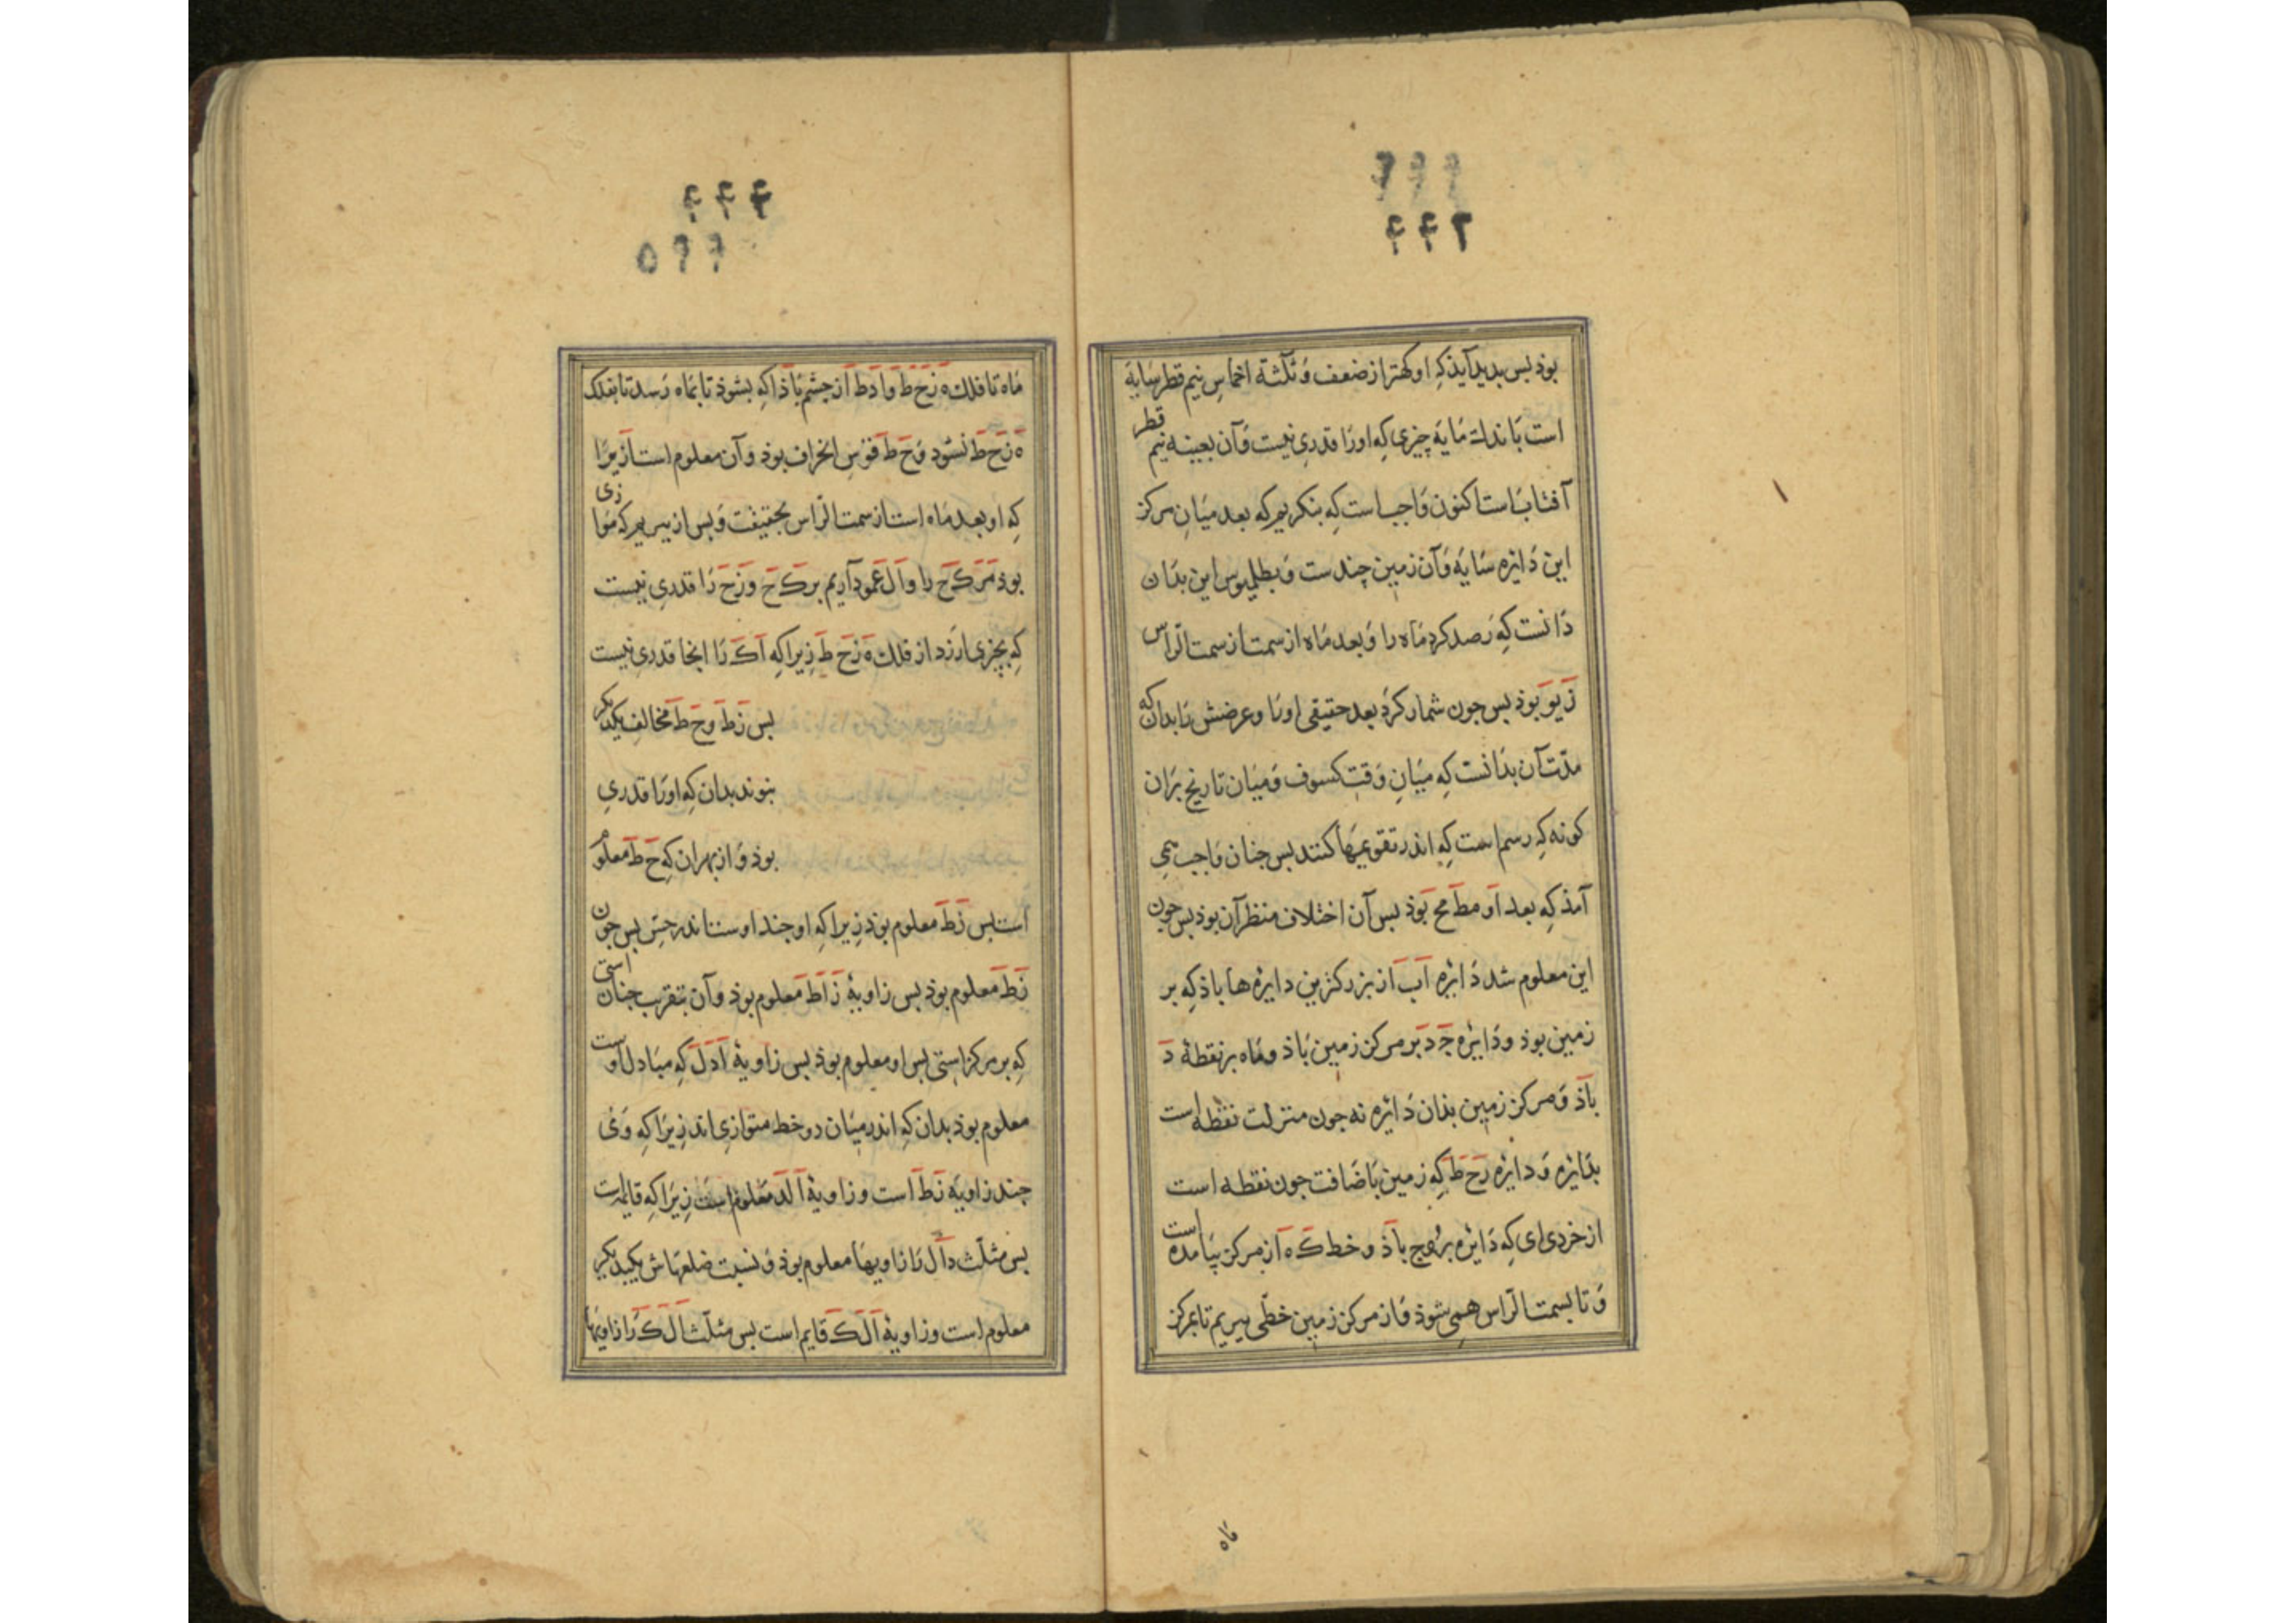 ۴۴۲
بوذ بس بدید آیذ کِه او کهتر از ضعف وَ ثلثة اخماسِ نیم قطر سَایَه
است بَاندك مَایَه چیزی کِه اورَا قدرِی نیست وَآن بعینه نیم قطر
آفتاب است اکنون وَاجب است کِه بنکریم که بعد میَانِ مرکز
این دَایره سَایَه وَآن زمین چندست وَ بطلمیوس این بدَان
دَانست که رَصد کرد مَاه را وَ بعد مَاه از سمت از سمت الرّاس
بوذ بس جون شمار کردُ بعد حقیقی اورَا و عرضش رَا بدان که
مدّت آن بدَانست کِه میَانِ وَقت کسوف وَ میَان تاریخ برَان
کونه کِه رسم است کِه اندر تقویمهَا کنند بس جنان وَاجب می
آمذ کِه بعد اَو مطَ مح بَوذ بس آن اختلاف منظر آن بوذ بس جون
این معلوم شد دَایره آب از بزرکترین دایره ها باذ کِه بر
زمین بوذ و دَایره جَ دَ بر مرکز زمین بَاذ و مَاه بر نقطۀ دَ
بَاذ وَ مرکز زمین بذان دَایره نه جون منزلت نقطه است
بدَایره وَ دایره رَحَ طَ کِه زمین بَاضَافت جون نقطه است
از خردی ای کِه دَایره بُروج بَاذ و خط کَ ه آ از مرکز بیَامده است
وَ تا بسمت الرّاس همی شوذ وَ از مرکز زمین خطّی ببریم تا بمرکز
مَاه
۴۴۳
مَاه تا فلك ه زَحَ طَ وَ ادَطَ از جشم بَاذ اکِه بشوذ تا بمَاه رَسد تا بفلک
ه زَحَ طَ نشود وَحَ طَ قوسِ انحراف بوذ وَ آن معلوم است زیرَا
کِه او بعد مَاه است از سمت الرّاس بحقیقت وَ بس از ببریم که موَازی
بوذ مَرکَحَ را وَ اَلَ عَمود آریم بر کَ حَ وَ زَحَ رَا قدرِی نیست
کِه بچیزی ارزد از فلك ه زَحَ طَ زیرا که اَکَ رَا انجا قدرِی نیست
بس زَطَ و حَ طَ مخالف یکدیکر
نبوند بدان کِه اورَا قدرِی
بوذ وَ از بهران کِه حَ طَ معلوم
است بس زَطَ معلوم بوذ زیرا کِه او جند اوست اندر حِس بس جون
زَطَ معلوم بوذ بس زاویۀ زَاطَ معلوم بوذ وَ آن بتقریب جنان استی
کِه بر مرکز استی بس او معلوم بوذ بس زاویۀ اَدَلَ کِه مبَادل اوست
معلوم بوذ بدان کِه اندر میَان دو خط متوازی اند زیرَا کِه وَی
چند زاویَه زَطَ اَ است و زاویۀ اَلَدَ معلوم است زیرَا کِه قایمست
بس مثلّث داَل رَا زاویهَا معلوم بوذ وَ نسبت ضلعهَاش بیکدیکر
معلوم است و زاویۀ اَلَ کَ قایم است بس مثلّث اَلَ کَ رَا زاویهَا